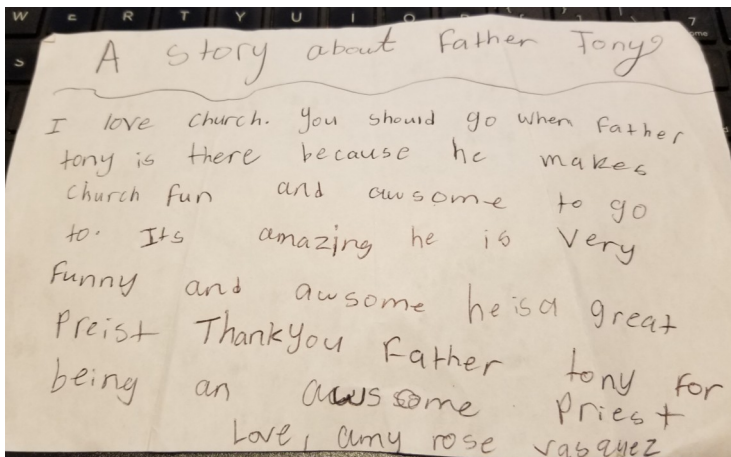 W E R T Y U I O 7
S
A story about Father Tony
I love church. You should go when Father
tony is there because he makes
church fun and awsome to go
to. Its amazing he is very
funny and awsome he is a great
Preist Thankyou Father tony for
being an awssome Priest
Love, amy rose vasquez